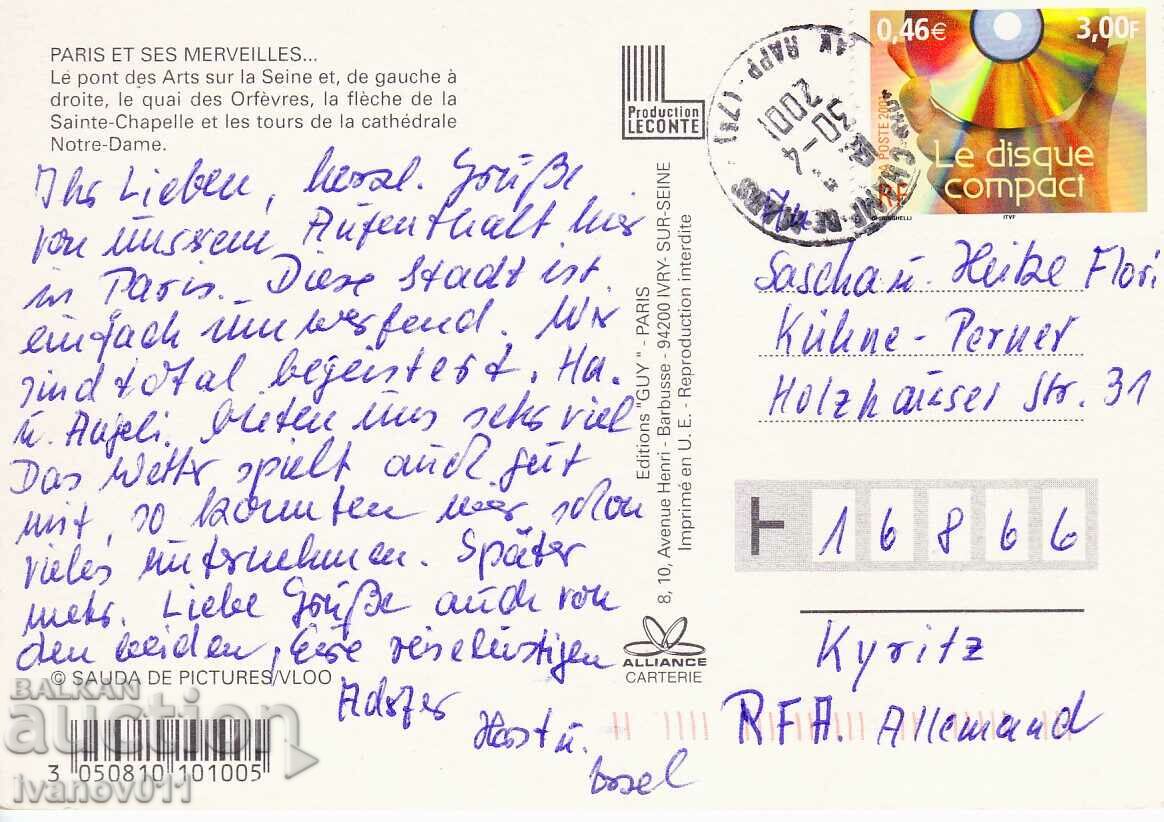 PARIS ET SES MERVEILLES...
Le pont des Arts sur la Seine et, de gauche à
droite, le quai des Orfèvres, la flèche de la
Sainte-Chapelle et les tours de la cathédrale
Notre-Dame.
Ihr Lieben, herzl. Grüße
von unserem Aufenthalt hier
in Paris. Diese Stadt ist
einfach umwerfend. Wir
sind total begeistert. Ha.
u. Angeli. bieten uns sehr viel
Das Wetter spielt auch gut
mit, so konnten wir schon
vieles unternehmen. Später
mehr. Liebe Grüße auch von
den beiden, Eure reiselustigen
Horst u.
© SAUDA DE PICTURES/VLOO
3 050810 101005
Production
LECONTE
Editions "GUY" - PARIS
8, 10, Avenue Henri - Barbusse - 94200 IVRY- SUR-SEINE
Imprimé en U. E. - Reproduction interdite
ALLIANCE
CARTERIE
0,46€ 3,00F
Le disque
compact
LA POSTE 2001
RF
ITVF
4K RAPP
2001
An
Sascha u. Heike Flori
Kühne - Perner
Holzhauser Str. 31
16866
Kyritz
RFA. Allemand
BALKAN
auction
ivanov011